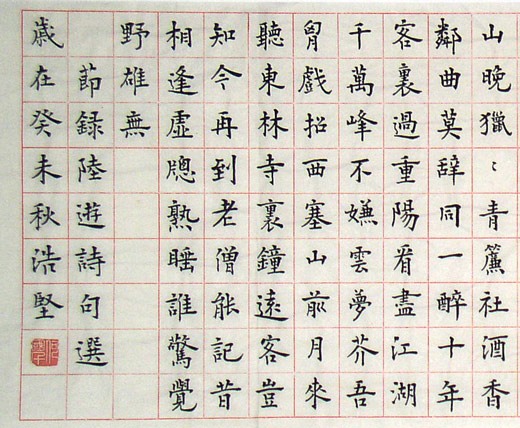 山晚獵〻青簾社酒香
鄰曲莫辭同一醉十年
客裏過重陽看盡江湖
千萬峰不嫌雲夢芥吾
胷戲招西塞山前月來
聽東林寺裏鐘遠客豈
知今再到老僧能記昔
相逢虛牕熟睡誰驚覺
野雄無
節録陸遊詩句選
歲在癸未秋浩堅